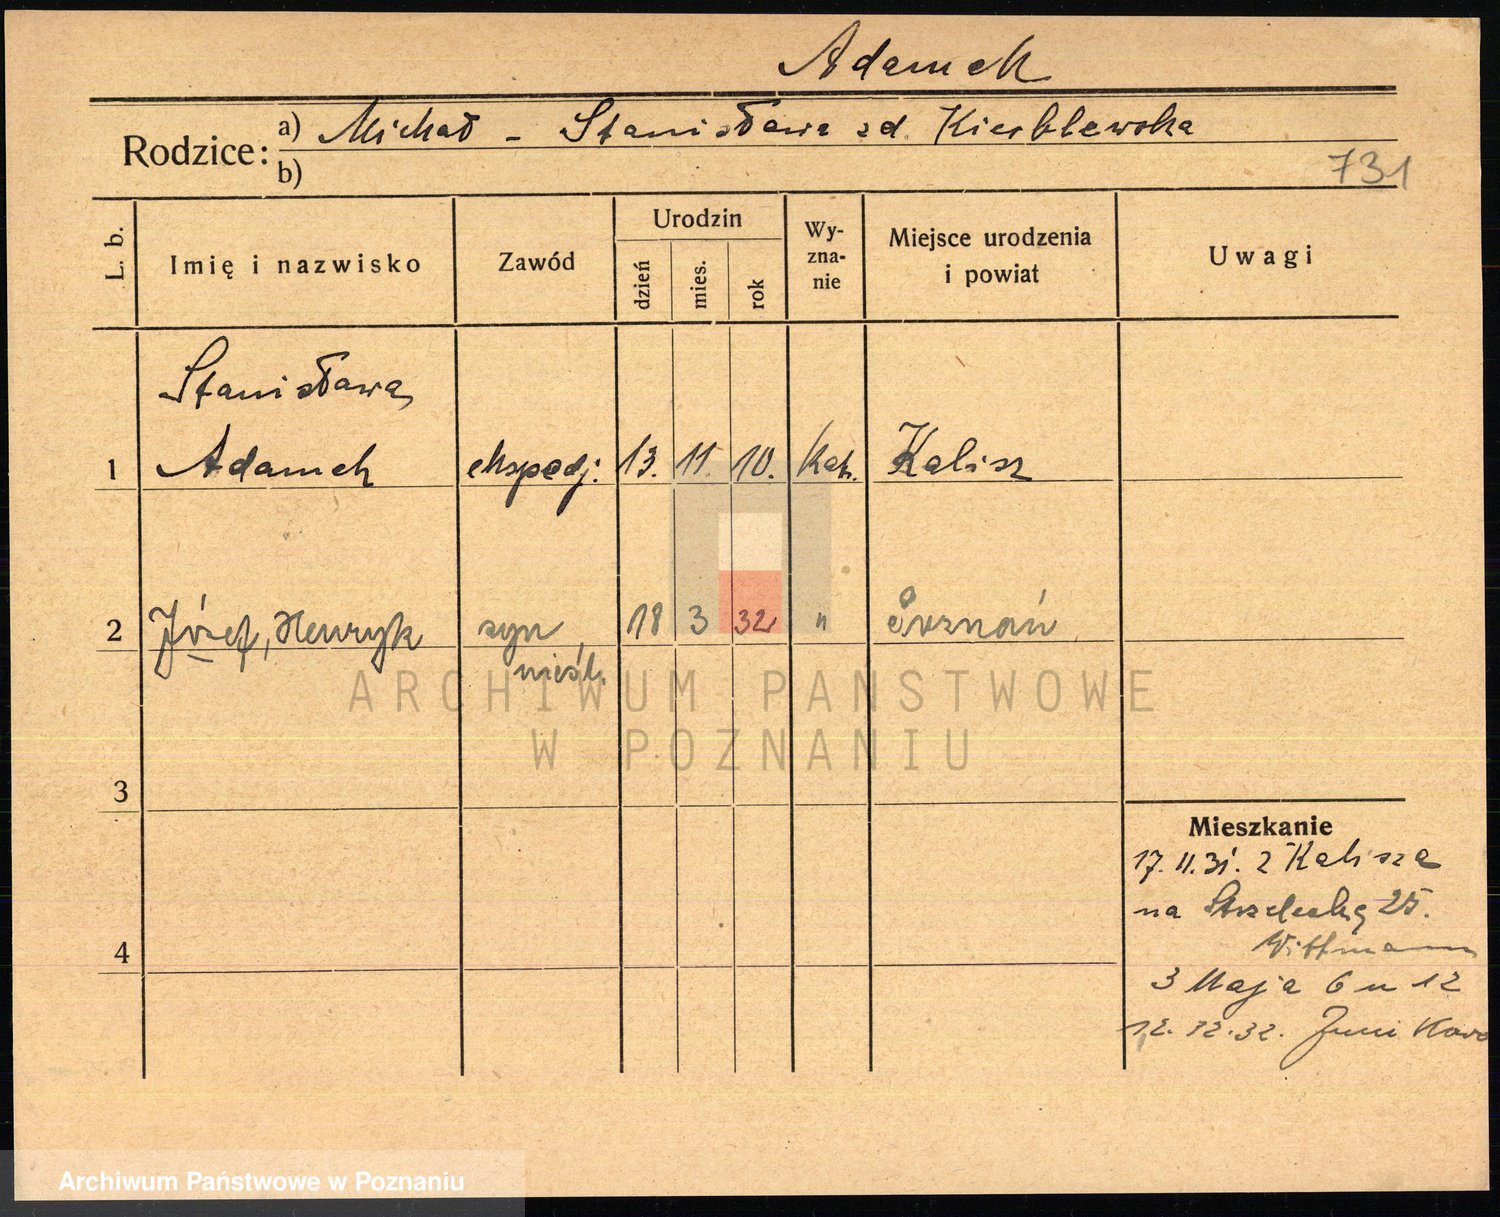 Adamek
Rodzice: a) Michał - Stanisława zd. Kieblewska
b)
731
L. b.
Imię i nazwisko
Zawód
Urodzin
dzień
mies.
rok
Wy-
zna-
nie
Miejsce urodzenia
i powiat
Uwagi
Stanisława
1 Adamek ekspedj. 13. 11. 10. Kat. Kalisz
2 Józef, Henryk syn 18 3 32 " Poznań
nieśl.
ARCHIWUM PAŃSTWOWE
W POZNANIU
3
Mieszkanie
17. 11. 31. z Kalisza
na Strzelecką 25.
4
Wittmann
3 Maja 6 u 12
12. 12. 32.
Archiwum Państwowe w Poznaniu